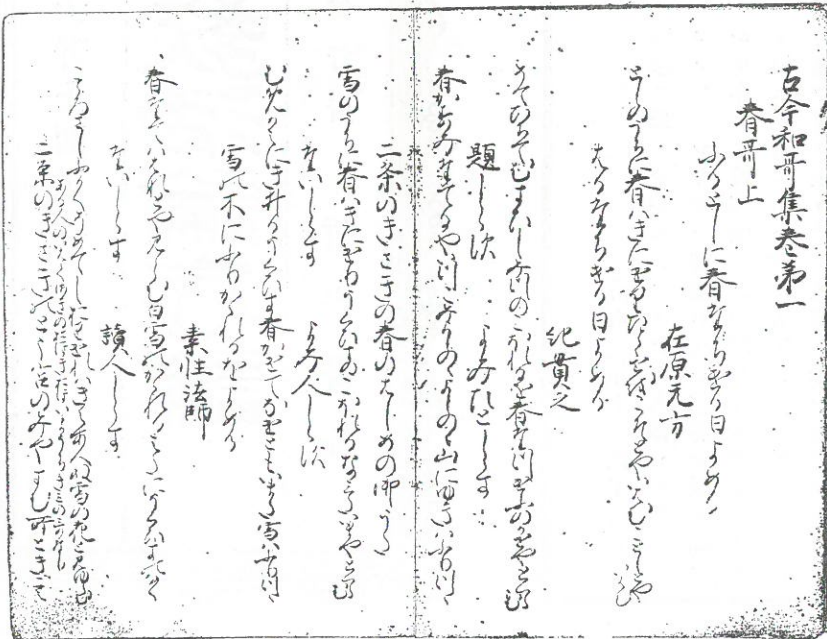 古今和哥集巻第一
春哥上
ふるとしに春たちける日よめる
在原元方
としのうちに春はきにけりひとゝせをこそとやいはむことしとや
いはむ
はるたちける日よめる
紀貫之
そてひちてむすひし水のこほれるを春立けふのかせやとくらむ
題しらす　よみ人しらす
春かすみたてるやいつこみよしのゝよしのゝ山にゆきはふりつゝ
二条のきさきの春のはしめの御うた
雪のうちに春はきにけりうくひすのこほれるなみたいまやとくらむ
たいしらす　よみ人しらす
むめかえにきゐるうくひす春かけてなけともいまた雪はふりつゝ
雪の木にふりかゝれるをよめる
素性法師
春たては花とや見らむ白雪のかゝれるえたにうくひすのなく
たいしらす　讀人しらす
こゝろさしふかくそめてしおりけれはきえあへぬ雪の花と見ゆらむ
ある人のいはくさきのおほきおほいまうちきみの哥なり
二条のきさきのとう宮のみやすむ所ときこえ